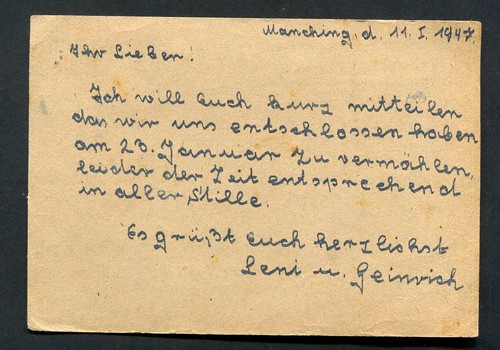 Manching, d. 11. I. 1947.
Ihr Lieben!
Ich will Euch kurz mitteilen
das wir uns entschlossen haben
am 23. Januar zu vermählen,
leider der Zeit entsprechend
in aller Stille.
Es grüßt Euch herzlichst
Leni u. Heinrich